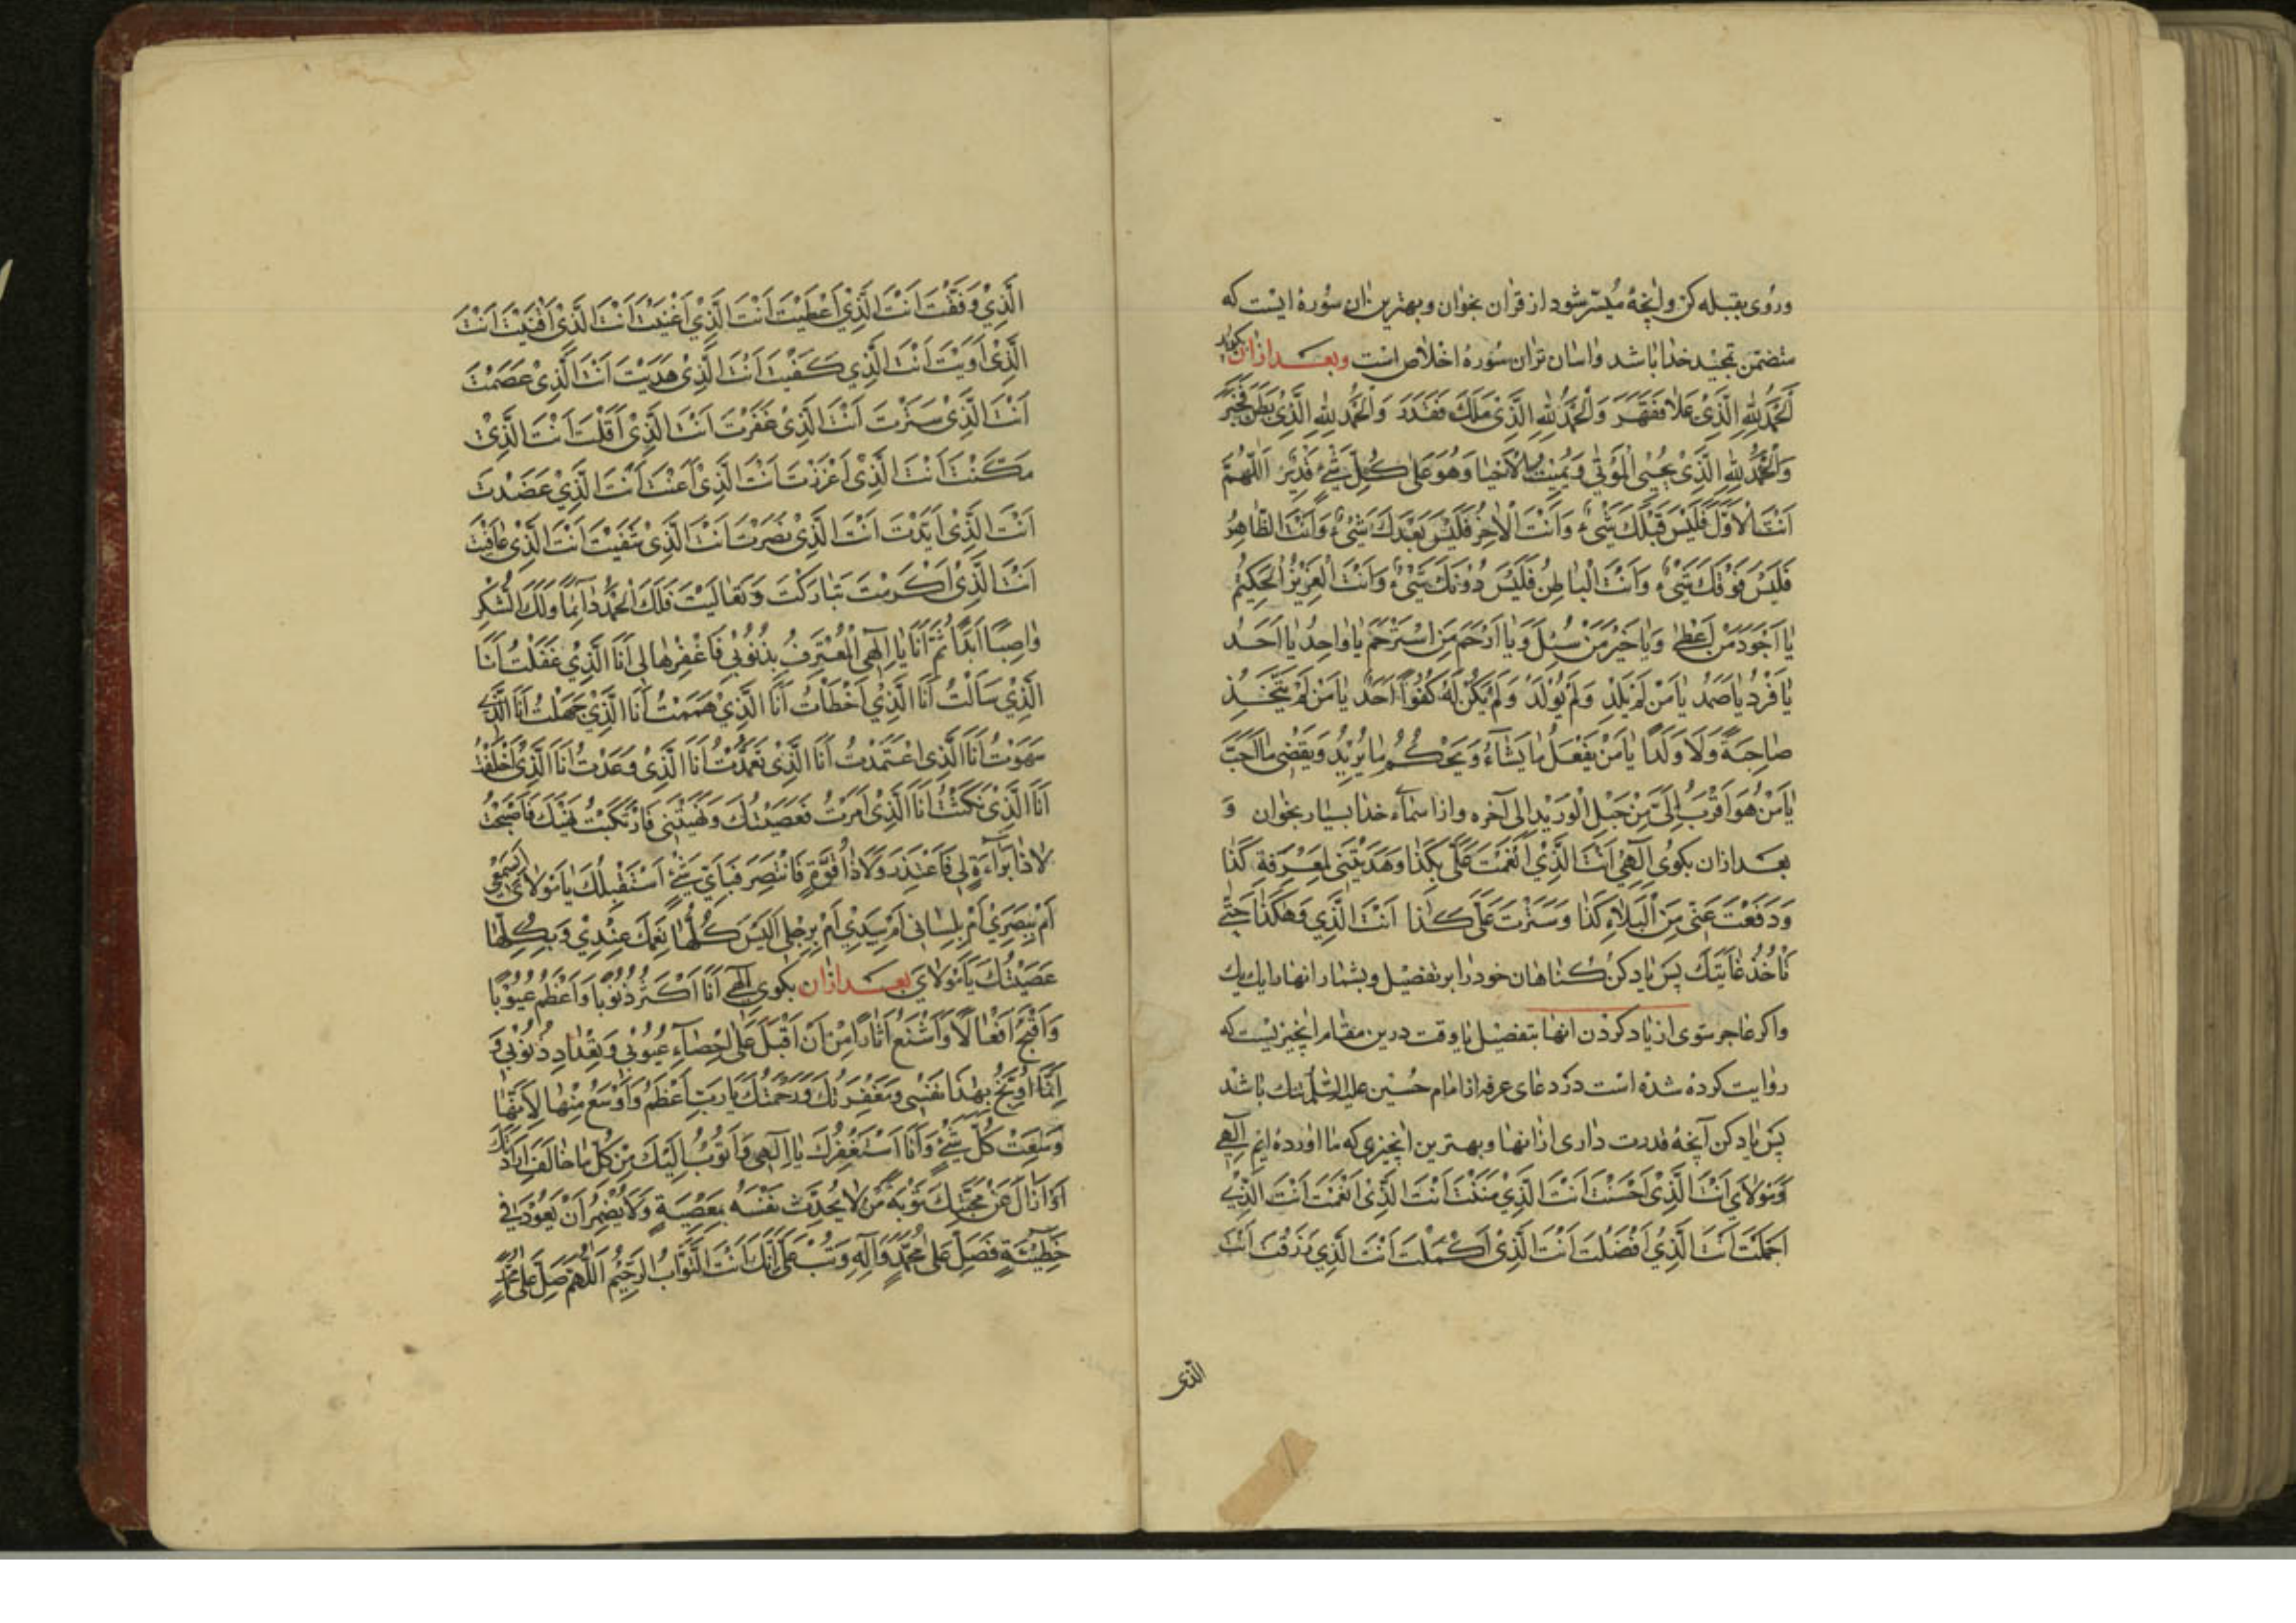 وروی بقبله کن وانچه میسّر شود از قران بخوان وبهترین ان سُورهٔ ایست که
متضمّن تمجید خدا باشد واسان تران سُورهٔ اخلاص است وبعد ازان بکوید
اَلحَمْدُ لِلّهِ الَّذِیْ عَلَا فَقَهَرَ وَالْحَمْدُ لِلّهِ الَّذِیْ مَلَكَ فَقَدَرَ وَالْحَمْدُ لِلّهِ الَّذِیْ بَطَنَ فَخَبَرَ
وَالْحَمْدُ لِلّهِ الَّذِیْ یُحْیِی الْمَوْتٰی وَیُمِیْتُ الْاَحْیَا وَهُوَ عَلٰی کُلِّ شَیْءٍ قَدِیْرٌ اَللّٰهُمَّ
اَنْتَ الْاَوَّلُ فَلَیْسَ قَبْلَكَ شَیْءٌ وَاَنْتَ الْاٰخِرُ فَلَیْسَ بَعْدَكَ شَیْءٌ وَاَنْتَ الظّاهِرُ
فَلَیْسَ فَوْقَكَ شَیْءٌ وَاَنْتَ الْبَاطِنُ فَلَیْسَ دُوْنَكَ شَیْءٌ وَاَنْتَ الْعَزِیْزُ الْحَکِیْمُ
یٰا اَجْوَدَ مَنْ اَعْطٰی وَیٰا خَیْرَ مَنْ سُئِلَ وَیٰا اَرْحَمَ مَنِ اسْتُرْحِمَ یٰا وٰاحِدُ یٰا اَحَدُ
یٰا فَرْدُ یٰا صَمَدُ یٰا مَنْ لَمْ یَلِدْ وَلَمْ یُوْلَدْ وَلَمْ یَکُنْ لَهُ کُفُوًا اَحَدٌ یٰا مَنْ لَمْ یَتَّخِذْ
صٰاحِبَةً وَلَا وَلَدًا یٰا مَنْ یَفْعَلُ مٰا یَشٰاءُ وَیَحْکُمُ مٰا یُرِیْدُ وَیَقْضِی مٰا اَحَبَّ
یٰا مَنْ هُوَ اَقْرَبُ اِلَیَّ مِنْ حَبْلِ الْوَرِیْدِ الی آخره واز اسماء خدا بسیار بخوان وَ
بعد ازان بکوی اِلٰهِیْ اَنْتَ الَّذِیْ اَنْعَمْتَ عَلَیَّ بِکَذٰا وَهَدَیْتَنِی لِمَعْرِفَةِ کَذٰا
وَدَفَعْتَ عَنِّی مِنَ الْبَلاءِ کَذٰا وَسَتَرْتَ عَلَیَّ کَذٰا اَنْتَ الَّذِی وَهٰکَذٰا حَتّٰی
تٰاخُذَ غٰایَتَكَ پس یاد کن کناهان خود را بر تفصیل وبشمار انها را یك یك
واکر عاجر شوی از یاد کردن انها بتفصیل یا وقت درین مقام انچیزیست که
روایت کرده شده است در دعای عرفه از امام حسین علیه السّلام تنك باشد
پس یاد کن آنچهٔ قدرت داری ازانها وبهترین انچیزی که ما اورده ایم اِلٰهِی
وَمَوْلَایَ اَنْتَ الَّذِیْ اَحْسَنْتَ اَنْتَ الَّذِیْ مَنَنْتَ اَنْتَ الَّذِیْ اَنْعَمْتَ اَنْتَ الَّذِیْ
اَجْمَلْتَ اَنْتَ الَّذِیْ اَفْضَلْتَ اَنْتَ الَّذِیْ اَکْمَلْتَ اَنْتَ الَّذِی رَزَقْتَ اَنْتَ
الّذی
الَّذِیْ وَفَّقْتَ اَنْتَ الَّذِیْ اَعْطَیْتَ اَنْتَ الَّذِیْ اَغْنَیْتَ اَنْتَ الَّذِیْ اَقْنَیْتَ اَنْتَ
الَّذِیْ اٰوَیْتَ اَنْتَ الَّذِیْ کَفَیْتَ اَنْتَ الَّذِیْ هَدَیْتَ اَنْتَ الَّذِیْ عَصَمْتَ
اَنْتَ الَّذِیْ سَتَرْتَ اَنْتَ الَّذِیْ غَفَرْتَ اَنْتَ الَّذِیْ اَقَلْتَ اَنْتَ الَّذِیْ
مَکَّنْتَ اَنْتَ الَّذِیْ اَعْزَزْتَ اَنْتَ الَّذِیْ اَعَنْتَ اَنْتَ الَّذِیْ عَضَدْتَ
اَنْتَ الَّذِیْ اَیَّدْتَ اَنْتَ الَّذِیْ نَصَرْتَ اَنْتَ الَّذِیْ شَفَیْتَ اَنْتَ الَّذِیْ عٰافَیْتَ
اَنْتَ الَّذِیْ اَکْرَمْتَ تَبٰارَکْتَ وَتَعٰالَیْتَ فَلَكَ الْحَمْدُ دٰائِمًا وَلَكَ الشُّکْرُ
وٰاصِبًا اَبَدًا ثُمَّ اَنَا یٰا اِلٰهِی الْمُعْتَرِفُ بِذُنُوْبِیْ فَاغْفِرْهٰا لِی اَنَا الَّذِیْ غَفَلْتُ اَنَا
الَّذِیْ سَاَلْتُ اَنَا الَّذِیْ اَخْطَاْتُ اَنَا الَّذِیْ هَمَمْتُ اَنَا الَّذِیْ جَهِلْتُ اَنَا الَّذِیْ
سَهَوْتُ اَنَا الَّذِی اعْتَمَدْتُ اَنَا الَّذِیْ تَعَمَّدْتُ اَنَا الَّذِیْ وَعَدْتُ اَنَا الَّذِیْ اَخْلَفْتُ
اَنَا الَّذِیْ نَکَثْتُ اَنَا الَّذِیْ اَمَرْتَ فَعَصَیْتُكَ وَنَهَیْتَنِی فَارْتَکَبْتُ نَهْیَكَ فَاَصْبَحْتُ
لَا ذٰا بَرٰاءَةٍ لِی فَاَعْتَذِرَ وَلَا ذٰا قُوَّةٍ فَاَنْتَصِرَ فَبِاَیِّ شَیْءٍ اَسْتَقْبِلُكَ یٰا مَوْلَایَ اَبِسَمْعِی
اَمْ بِبَصَرِیْ اَمْ بِلِسٰانِی اَمْ بِیَدِیْ اَمْ بِرِجْلِی اَلَیْسَ کُلُّهٰا نِعَمَكَ عِنْدِیْ وَبِکُلِّهٰا
عَصَیْتُكَ یٰا مَوْلَایَ بعد ازان بکوی اِلٰهِی اَنَا اَکْثَرُ ذُنُوْبًا وَاَعْظَمُ عُیُوْبًا
وَاَقْبَحُ اَفْعٰالًا وَاَشْنَعُ اٰثٰارًا مِنْ اَنْ اَقْبَلَ عَلٰی اِحْصٰاءِ عُیُوْبِی وَتِعْدٰادِ ذُنُوْبِی وَ
اِنَّمٰا اُوَبِّخُ بِهٰذَا نَفْسِی وَمَغْفِرَتُكَ وَرَحْمَتُكَ یٰا رَبِّ اَعْظَمُ وَاَوْسَعُ مِنْهٰا لِاَنَّهٰا
وَسِعَتْ کُلَّ شَیْءٍ وَاَنَا اَسْتَغْفِرُكَ یٰا اِلٰهِی وَاَتُوْبُ اِلَیْكَ مِنْ کُلِّ مٰا خٰالَفَ اِرٰادَتَكَ
اَوْ اَزَالَ عَنْ مَحَبَّتِكَ تَوْبَةَ مَنْ لَا یُحَدِّثُ نَفْسَهُ بِمَعْصِیَةٍ وَلَا یُضْمِرُ اَنْ یَعُوْدَ فِی
خَطِیْئَةٍ فَصَلِّ عَلٰی مُحَمَّدٍ وَآلِهِ وَتُبْ عَلَیَّ اِنَّكَ اَنْتَ التَّوّٰابُ الرَّحِیْمُ اَللّٰهُمَّ صَلِّ عَلٰی مُحَمَّدٍ